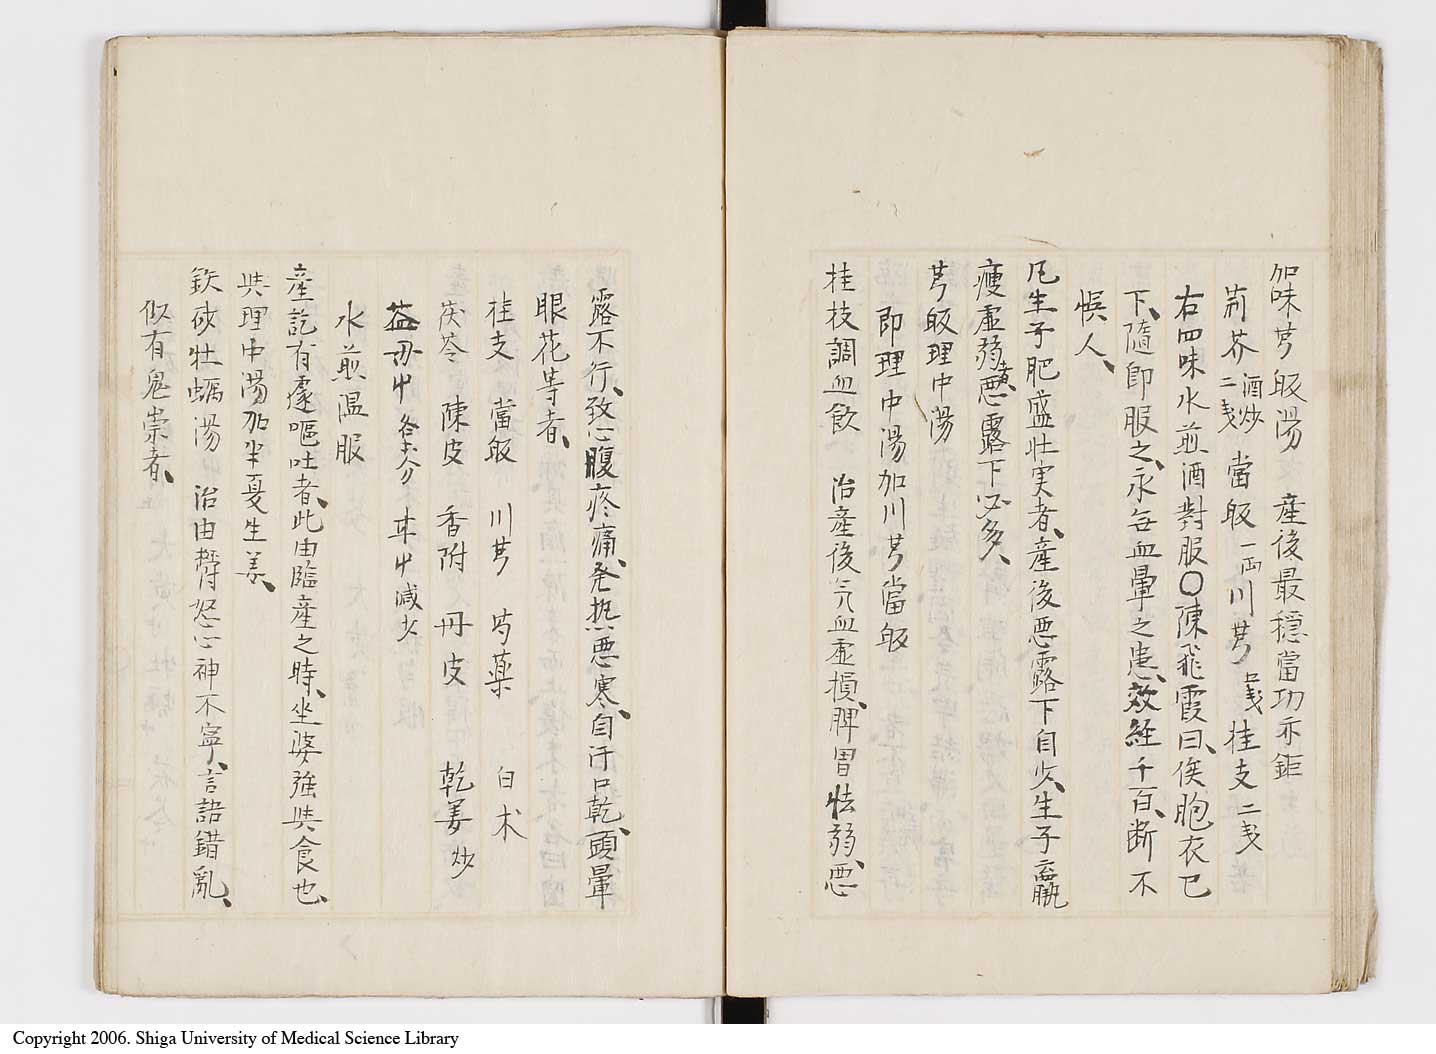 加味芎皈湯　産後最穩當功亦鉅
荊芥酒炒二戔　當皈一両川芎五戔桂支二戔
右四味水煎酒對服〇陳飛霞曰、俟胞衣已
下、隨即服之、永毎血暈之患、效経千百、断不
悞人、
凡生子肥盛壮実者、産後悪露下自少、生子羸
痩虚弱者悪露下必多、
芎皈理中湯
即理中湯加川芎當皈
桂枝調血飲　治産後気血虚損、脾胃怯弱、悪
露不行、致心腹疼痛、発熱悪寒、自汗口乾、頭暈
眼花等者、
桂支　當皈　川芎　芍薬　白朮
茯苓　陳皮　香附　丹皮　乾姜炒
益母艸各等分　甘艸減少
水煎温服
産訖有遽嘔吐者、此由臨産之時、坐婆強與食也、
與理中湯加半夏生姜、
鉄砂牡蛎湯　治由欝怒心神不寧、言語錯亂、
似有鬼祟者、
Copyright 2006. Shiga University of Medical Science Library